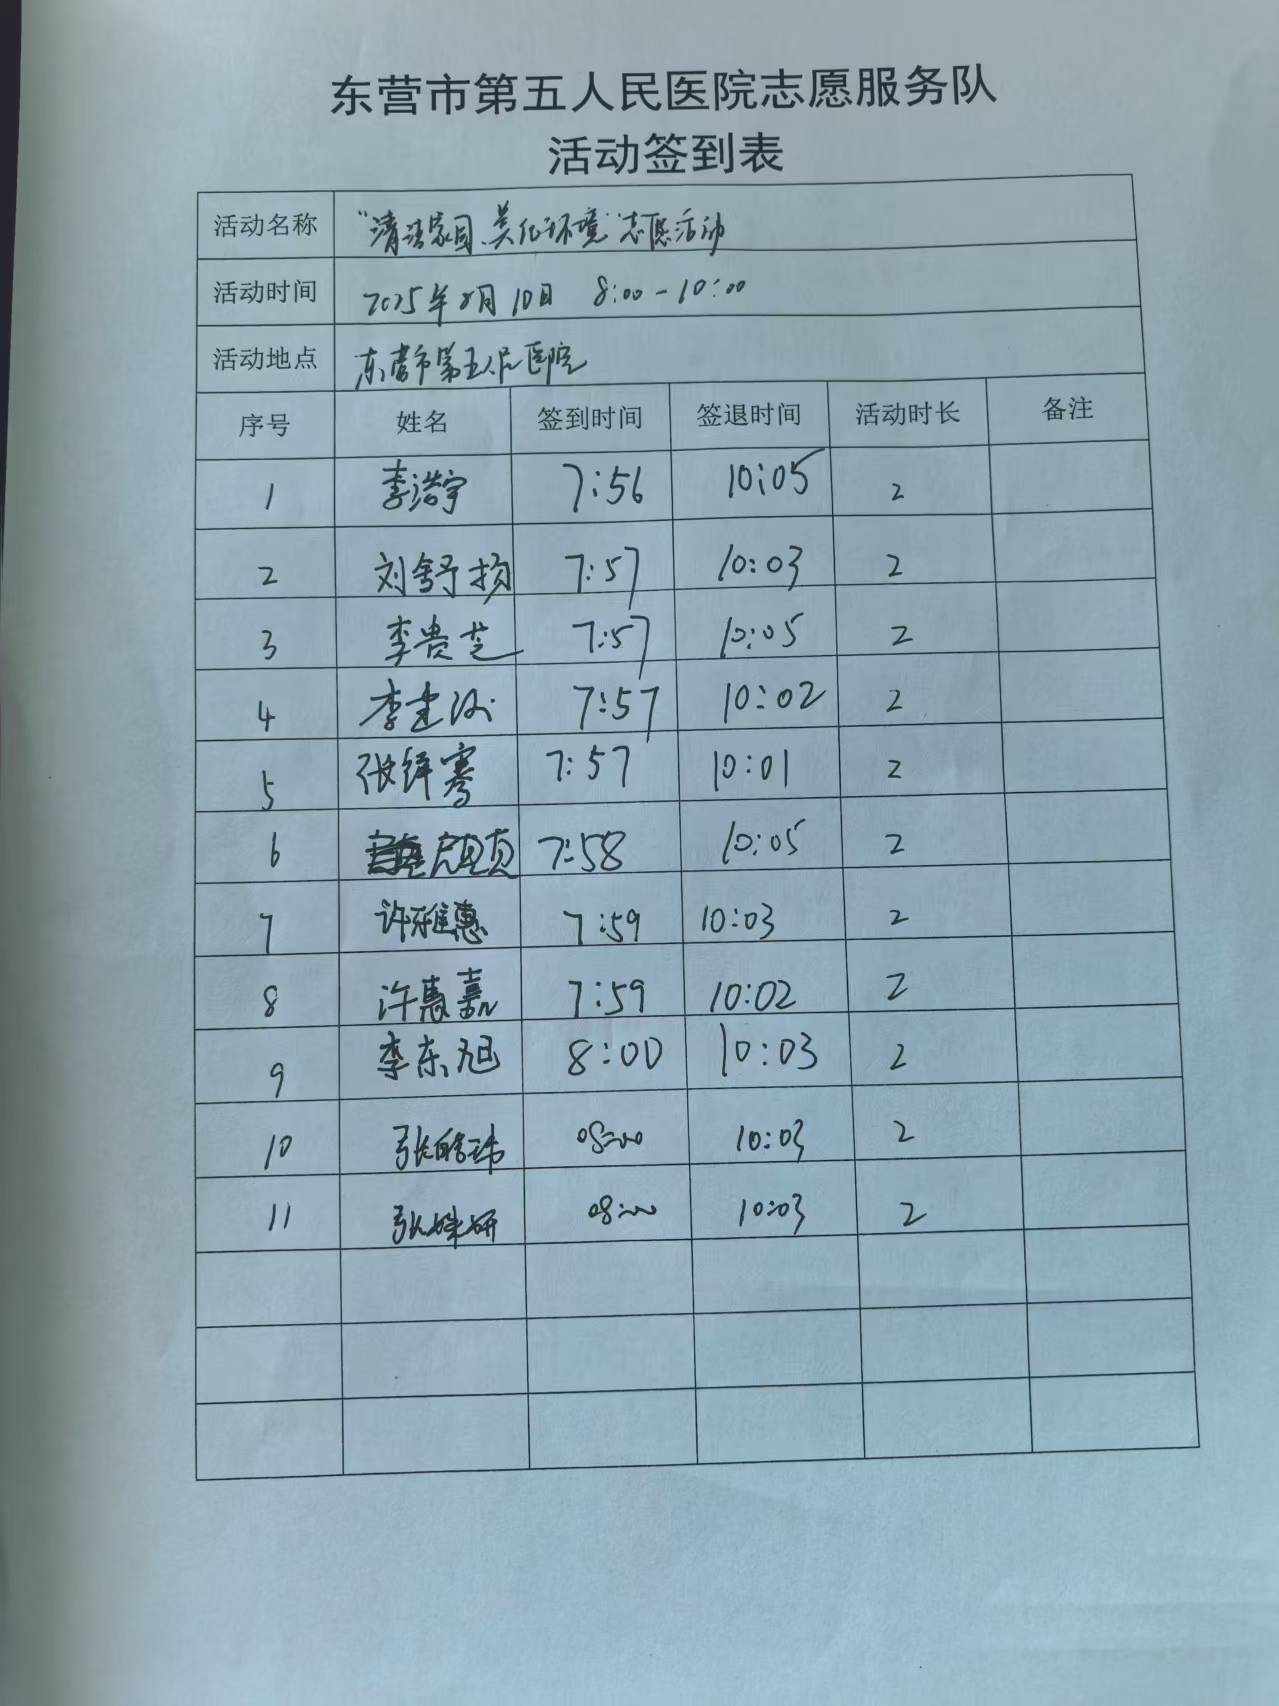 东营市第五人民医院志愿服务队
活动签到表
活动名称 "清洁家园、美化环境"志愿活动
活动时间 2025年8月10日 8:00-10:00
活动地点 东营市第五人民医院
序号 姓名 签到时间 签退时间 活动时长 备注
1 李浩宇 7:56 10:05 2
2 刘舒扬 7:57 10:03 2
3 李贵芝 7:57 10:05 2
4 李建 7:57 10:02 2
5 张铎骞 7:57 10:01 2
6 7:58 10:05 2
7 许雅惠 7:59 10:03 2
8 许惠嘉 7:59 10:02 2
9 李东旭 8:00 10:03 2
10 张皓玮 08:00 10:03 2
11 张姝妍 08:00 10:03 2